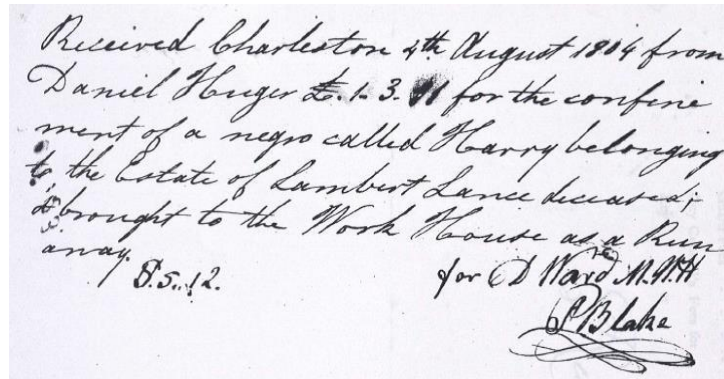 Received Charleston 4th August 1804 from
Daniel Huger £. 1. 3. 11 for the confine
ment of a negro called Harry belonging
to the Estate of Lambert Lance deceased;
& brought to the Work House as a Run
away.
$.5..12.
for D Ward M.W.H
P Blake